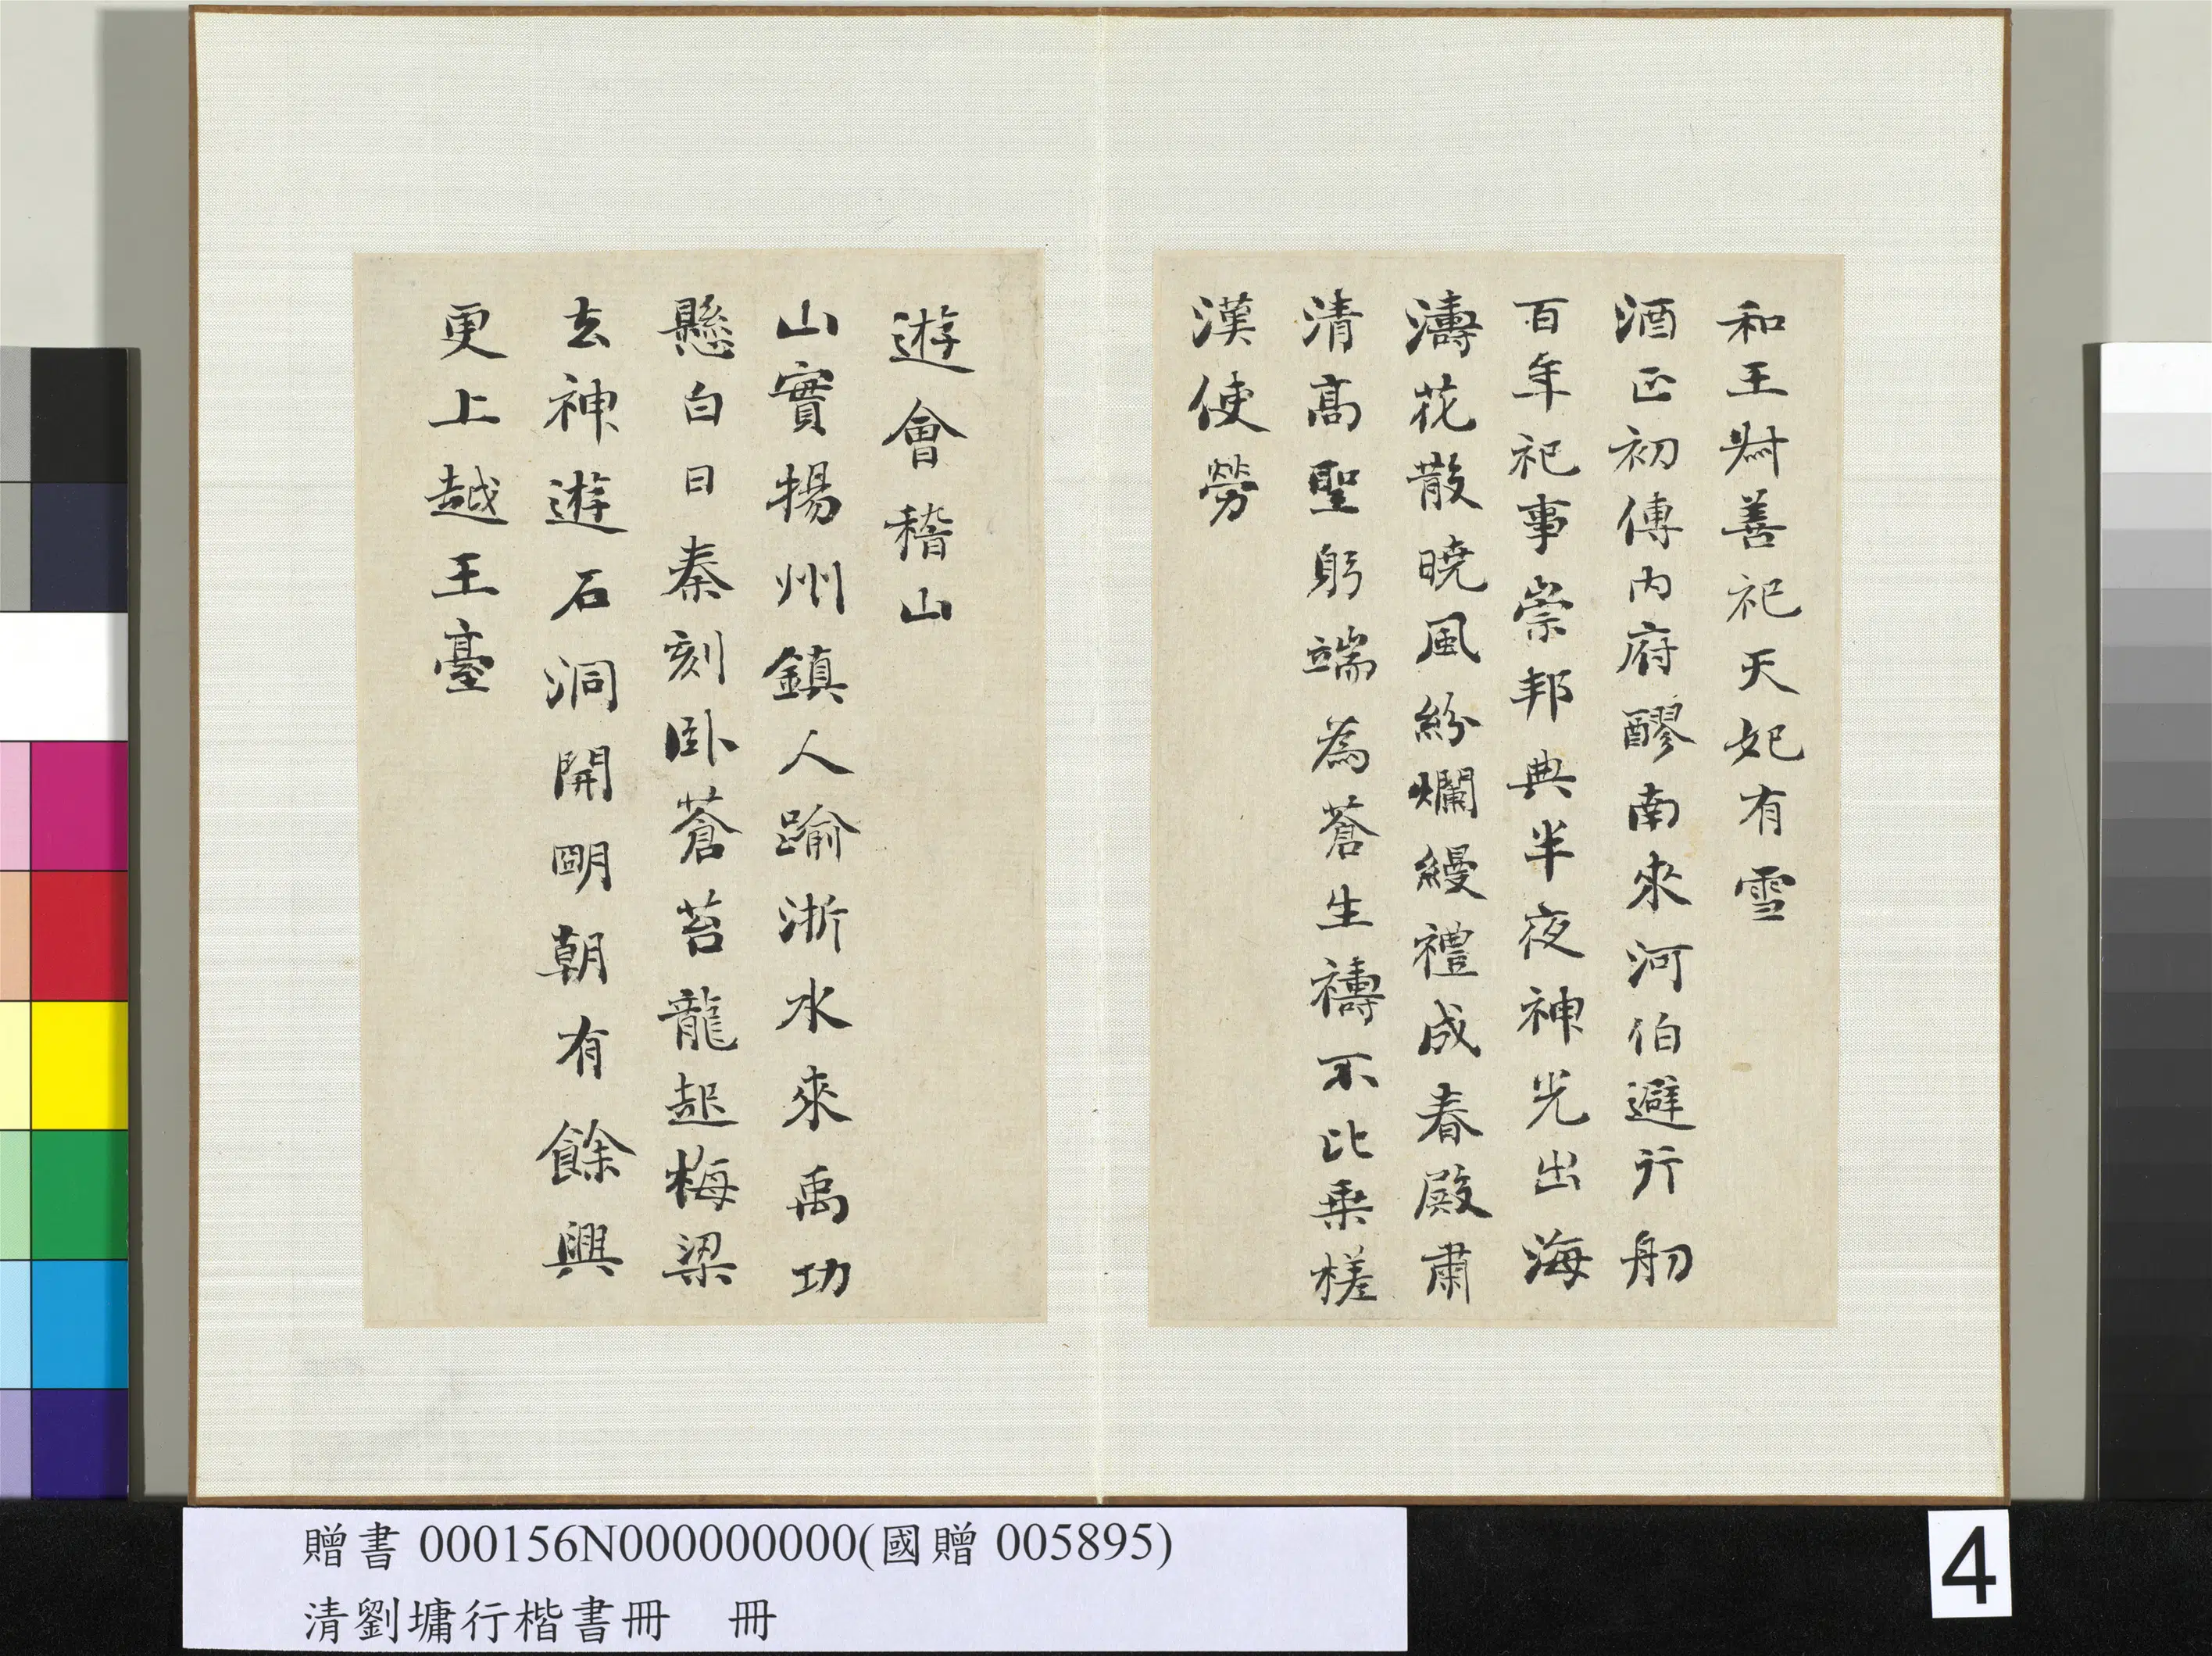 和王尉善祀天妃有雪
酒正初傳內府醪南來河伯避行舠
百年祀事崇邦典半夜神光出海
濤花散曉風紛爛縵禮成春殿肅
清高聖躬端為蒼生禱不比乗槎
漢使勞
遊會稽山
山實揚州鎮人踰浙水來禹功
懸白日秦刻臥蒼苔龍起梅梁
去神遊石洞開朙朝有餘興
更上越王臺
贈書 000156N000000000(國贈 005895)
清劉墉行楷書冊 冊
4